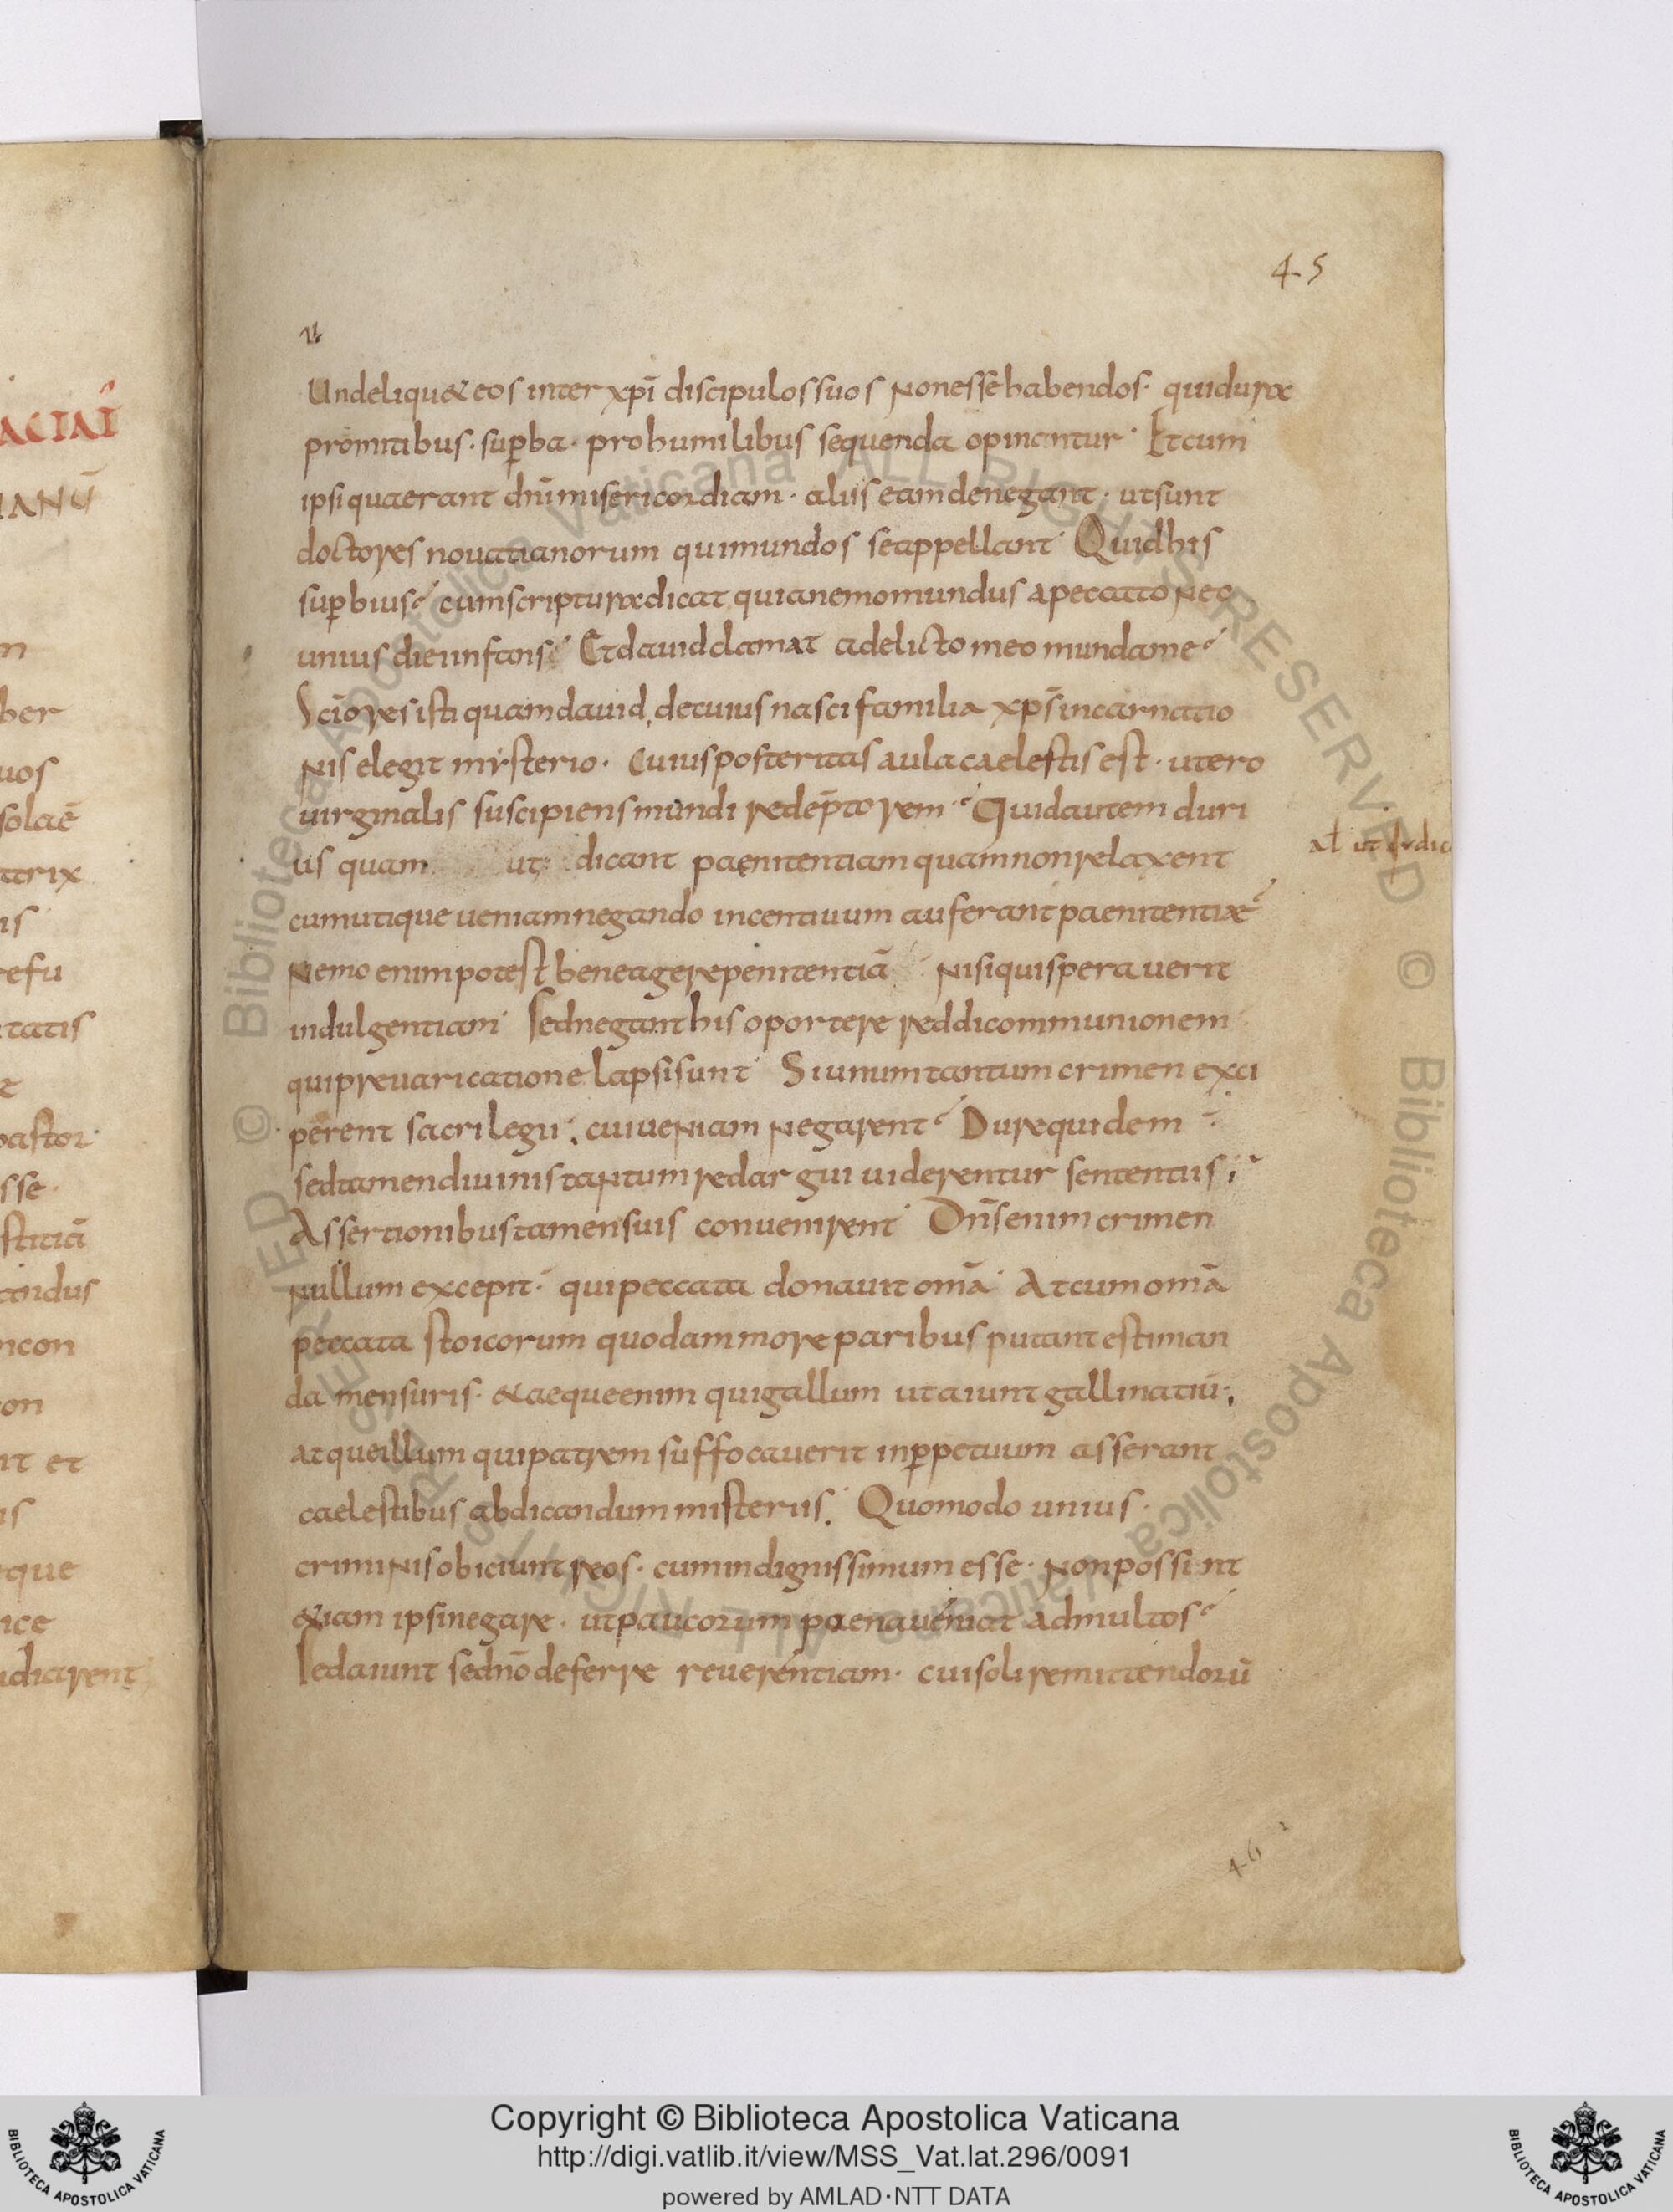 45
Undeliqu& eos inter xpī discipulos suos non esse habendos· qui dura
promitibus· supba· pro humilibus sequenda opinantur· Et cum
ipsi quaerant dnī misericordiam· aliis eam denegant· ut sunt
doctores novatianorum qui mundos se appellant· Quid his
supbius? cum scriptura dicat quia nemo mundus a peccato nec
unius diei infans· Et david clamat a delicto meo munda me
Scīores isti quam david, de cuius nasci familia xps̄ incarnatio
nis elegit mysterio· Cuius posteritas aula caelestis est· utero
virginalis suscipiens mundi redēptorem· Quid autem duri
us quam ut dicant paenitentiam quam non relaxent
al ut &dic
cum utique veniam negando incentivum auferant paenitentiae
Nemo enim potest bene agere penitentiā nisi qui speraverit
indulgentiam· Sed negant his oportere reddi communionem
qui prevaricatione lapsi sunt· Si unum tantum crimen exci
perent sacrilegii; cui veniam negarent· Dure quidem
sed tamen divinis tantum redargui viderentur sententiis;
Assertionibus tamen suis convenirent· Dn̄s enim crimen
nullum excepit· qui peccata donavit omā· At cum omā
peccata stoicorum quodam more paribus putant estiman
da mensuris· &aeque enim qui gallum ut aiunt gallinatiū;
atque illum qui patrem suffocaverit in ppetuum asserant
caelestibus abdicandum misteriis. Quomodo unius
criminis obiciunt reos· cum indignissimum esse· non possint
&iam ipsi negare· ut paucorum paena veniat ad multos
Sed aiunt se dnō deferre reverentiam· cui soli remittendorū
46
ACIAI
IANŪ
m
ber
uos
solaē
atrix
is
refu
tatis
pastor
sse·
stitiā
andus
ncon
on
nt et
is
que
ice
udicarent
© Biblioteca Apostolica Vaticana ALL RIGHTS RESERVED © Biblioteca Apostolica Vaticana ALL RIGHTS RESERVED
Copyright © Biblioteca Apostolica Vaticana
http://digi.vatlib.it/view/MSS_Vat.lat.296/0091
powered by AMLAD·NTT DATA
BIBLIOTECA APOSTOLICA VATICANA
BIBLIOTECA APOSTOLICA VATICANA